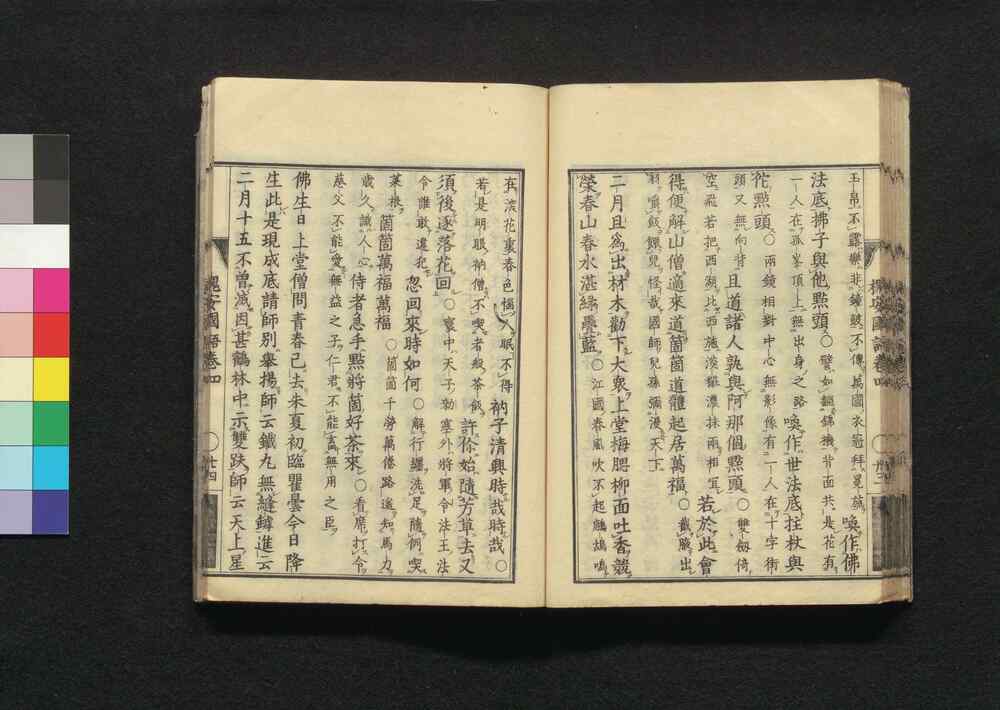 玉帛不露樂非鐘鼓不傳萬國衣冠拜冕旒 喚作佛
法底拂子與他點頭〇譬如錦機背面共是花有
一人在孤峯頂上無出身之路 喚作世法底拄杖與
佗點頭〇兩鏡相對中心無影像有一人在十字街
頭又無向背 且道諸人孰與阿那個點頭〇雙劒倚
空飛若把西湖比西施淡粧濃抹兩相宜 若於此會
得便解山僧適來道箇箇道體起居萬福〇截臘出
飯餵兒怪哉國師兒孫彌漫天下
二月旦爲出材木勸下大衆上堂梅腮柳面吐香競
榮春山春水湛綠疊藍〇江國春風吹不起鷓鴣啼
在深花裏春色惱人眠不得 衲子淸興時哉時哉〇
若是明眼衲僧不喫者般茶飯 許你始隨芳草去又
須後逐落花回〇寰中天子勑塞外將軍令法王法
令誰敢違犯 忽回來時如何〇解行纏洗足隨例喫
菜根 箇箇萬福萬福〇箇箇千勞萬倦路遙知馬力
歲久識人心 侍者急手點將箇好茶來〇看席打令
慈父不能愛無益之子仁君不能畜無用之臣
佛生日上堂僧問靑春已去朱夏初臨瞿曇今日降
生此是現成底請師別擧揚師云鐵丸無縫罅進云
二月十五不曾滅因甚鶴林中示雙趺師云天上星
槐安國語卷四
〇 七四